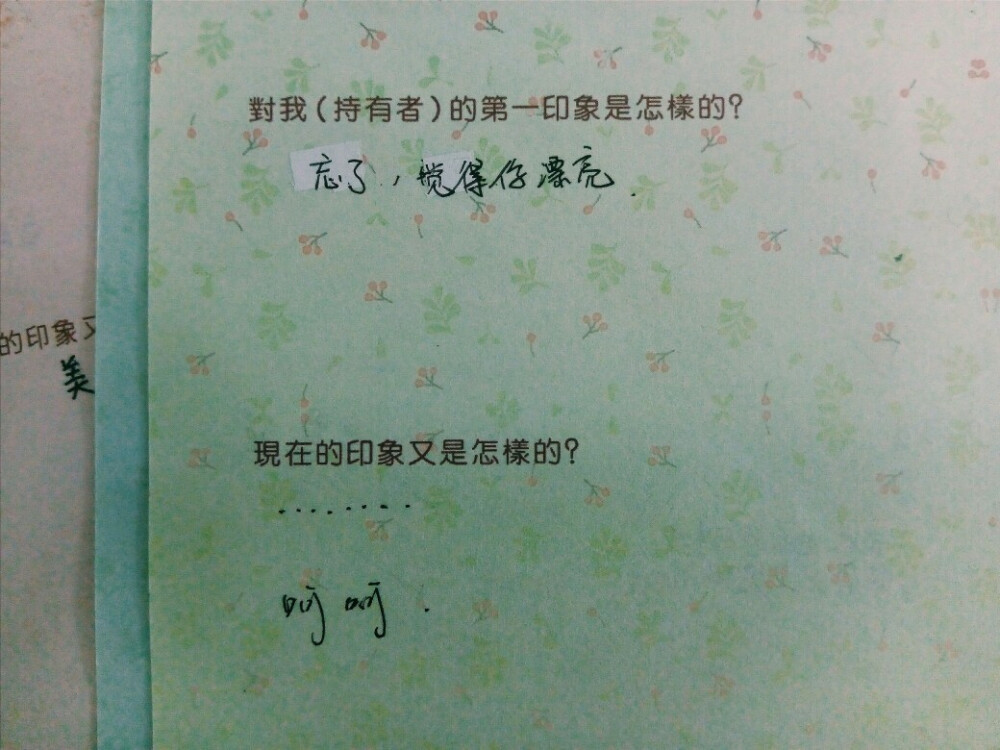 對我(持有者)的第一印象是怎樣的?
忘了,觉得你漂亮.
現在的印象又是怎樣的?
........
呵呵.
的印象又
美